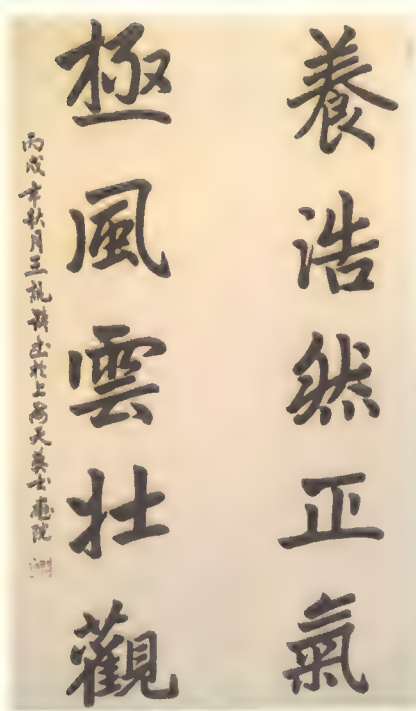 養浩然正氣
極風雲壯觀
丙戌年秋月三龍騎書於上海天英書畫院